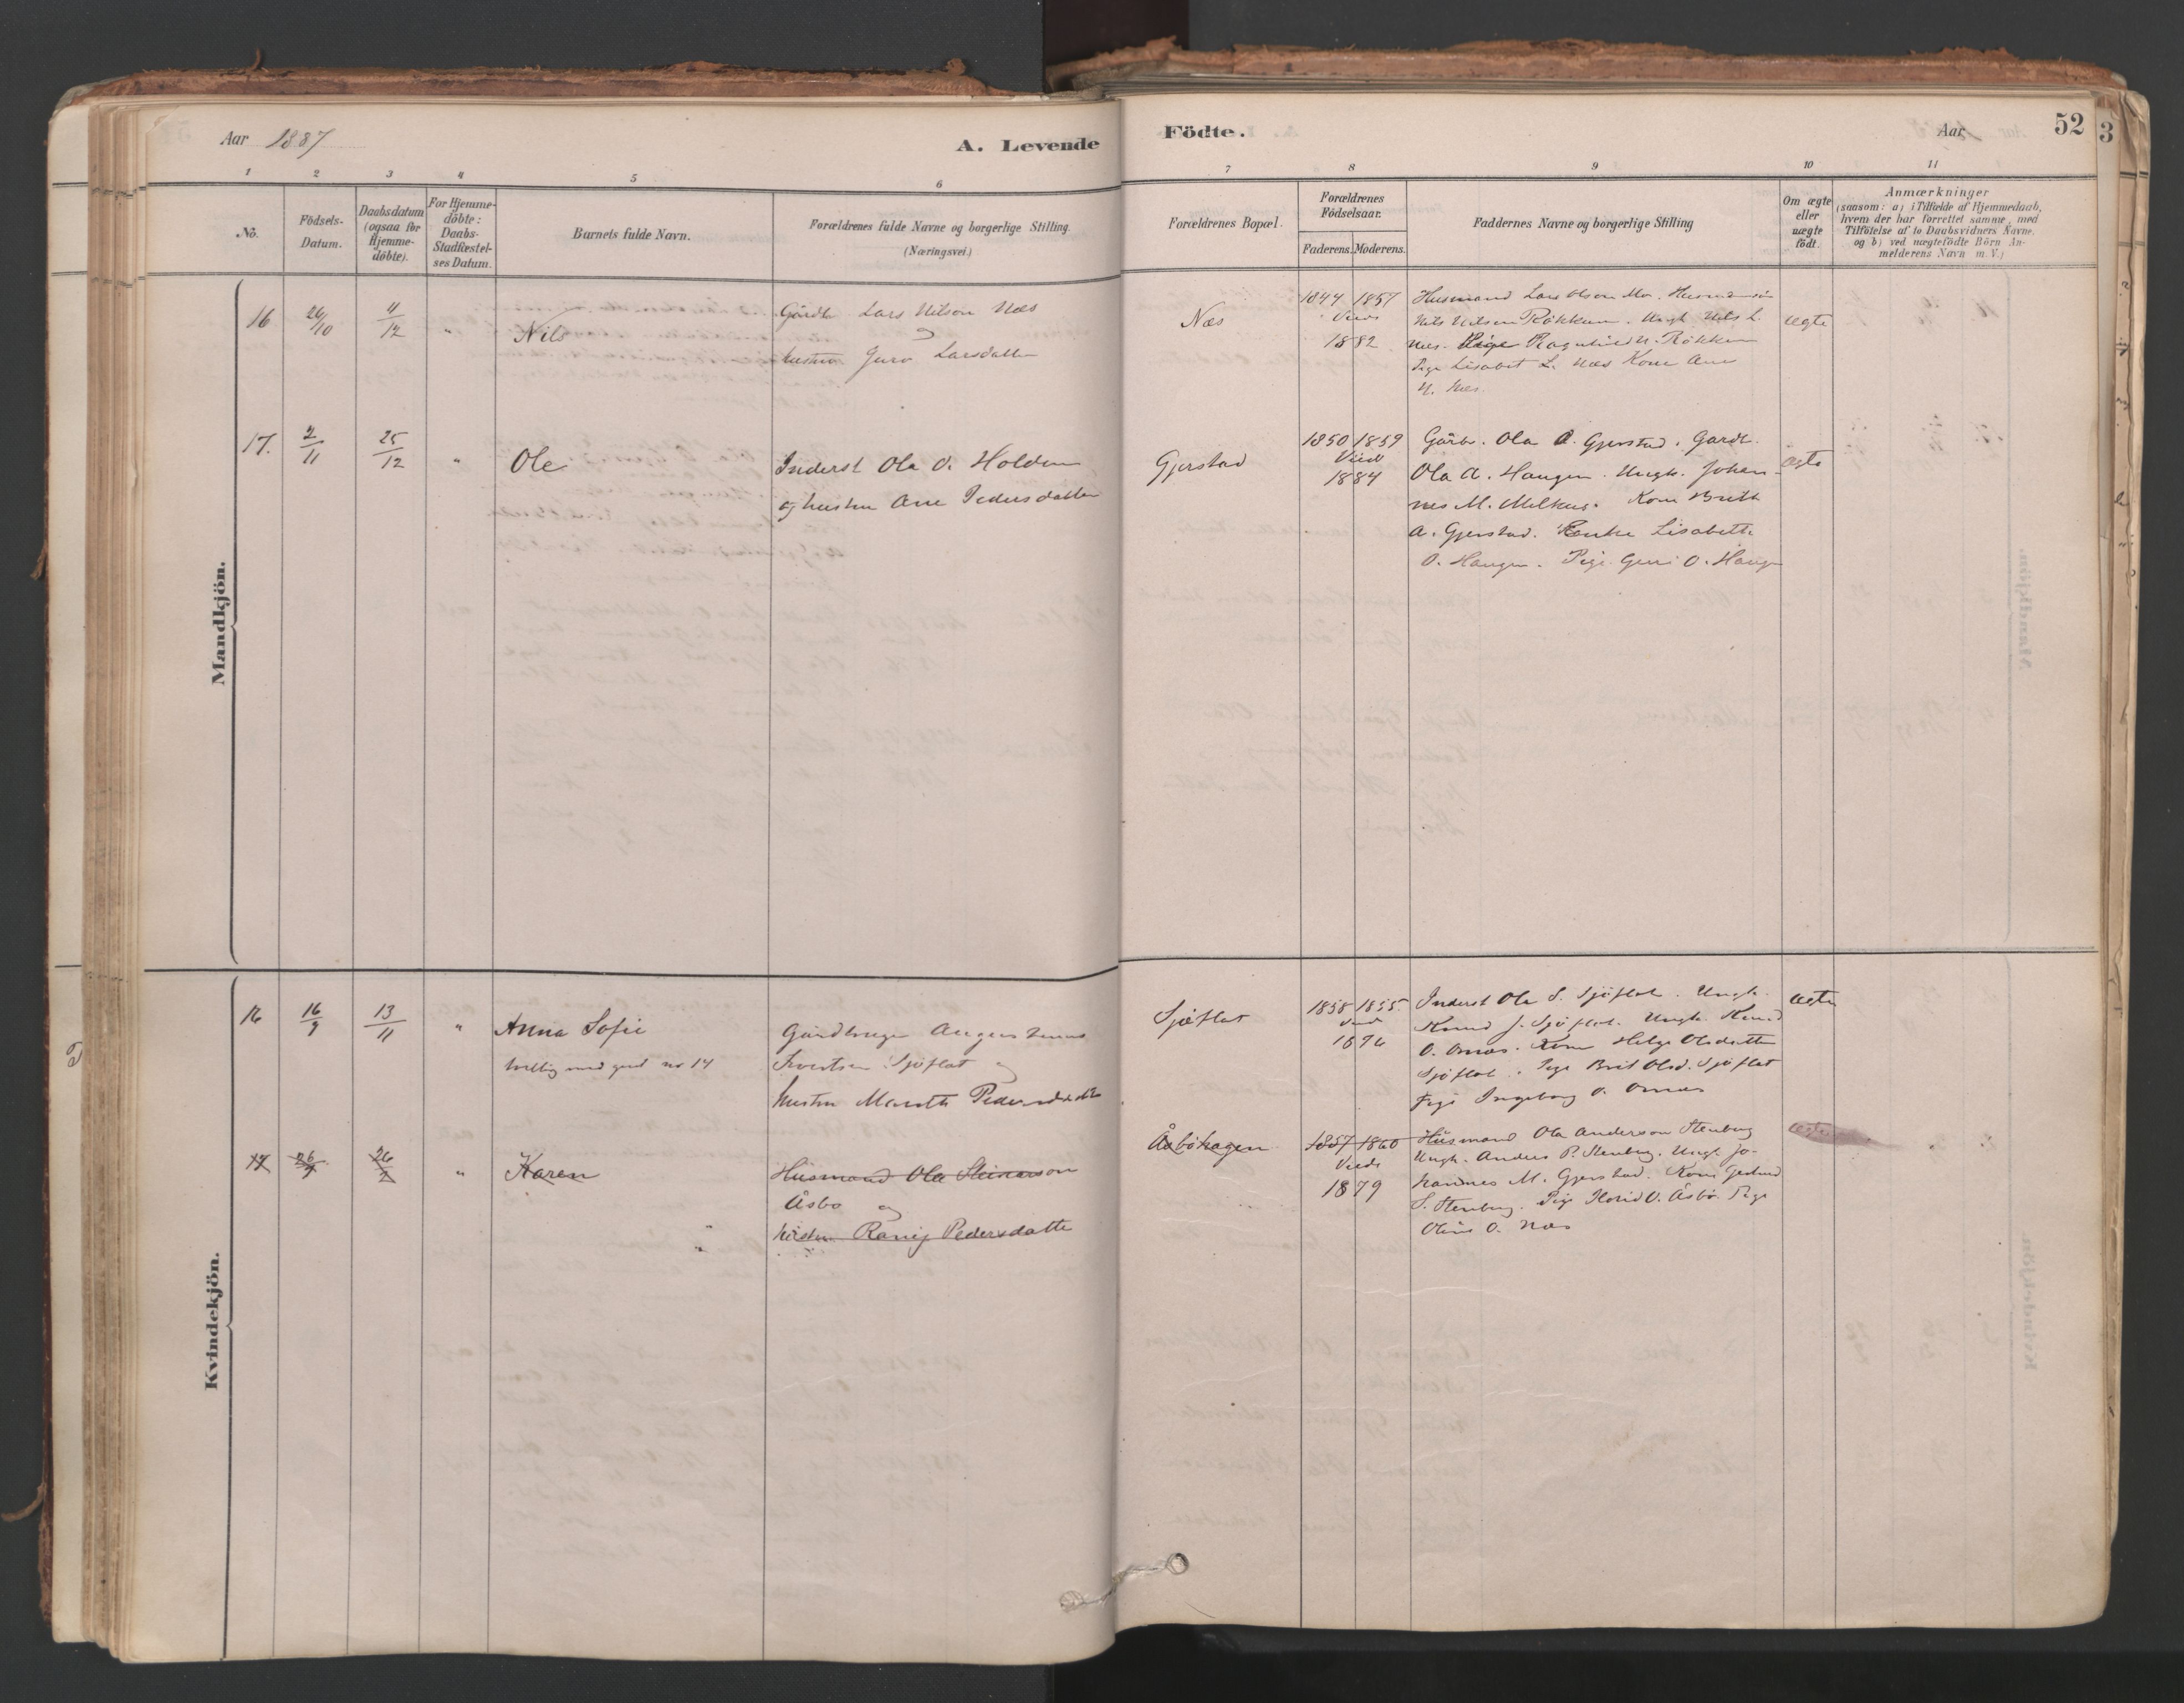 Aar 1887
A. Levende
Födte.
Aar
52
3
1 2 3 4 5 6 7 8 9 10 11
No.
Födsels-
Datum.
Daabsdatum
(ogsaa for
Hjemme-
döbte).
For Hjemme-
döbte:
Daabs-
Stadfæstel-
ses Datum.
Barnets fulde Navn.
Forældrenes fulde Navne og borgerlige Stilling.
(Næringsvei.)
Forældrenes Bopæl.
Forældrenes
Födselsaar.
Faderens. Moderens.
Faddernes Navne og borgerlige Stilling
Om ægte
eller
uægte
födt.
Anmærkninger
(saasom: a) i Tilfælde af Hjemmedaab,
hvem der har forrettet samme, med
Tilföielse af to Daabsvidners Navne.
og b) ved uægtefödte Börn An-
melderens Navn m. V.)
Mandkjön.
16 26/10 11/12 " Nils
Gårdb Lars Nilson Næs
og
hustru Guro Larsdatter
Næs
1844 1857
Viede
1882
Husmand Lars Olson
Nils Nilsen Räkkum. Ungk Nils L.
Næs. Pige Ragnhild N. Räkkum
Pige Lisabet L. Næs Kone Ane
N. Næs.
ægte
17. 2/11 25/12 " Ole
Inderst Ola O. Holden
og hustru Ane Pedersdatter
Gjerstad
1850 1859
Vied
1884
Gårb. Ola A. Gjerstad. Gardb.
Ola A. Haugen. Ungk. Johan-
nes M. Melkus. Kone Brith
A. Gjerstad. Enke Lisabeth
O. Haugen. Pige Guri O. Haugen
ægte
Kvindekjön.
16 16/9 13/11 " Anna Sofie
tvilling med gut no 14
Gårdbruger Augustinus
Sivertsen Sjöflat og
hustru Marith Pedersdatter
Sjöflat
1858 1855.
Vied
1876
Inderst Ola S. Sjöflat. Ungk.
Knud J. Sjöflat. Ungk. Knud
O. Ornæs. Kone Helga Olsdatter
Sjöflat. Pige Brit Olsd. Sjöflat
Pige Ingeborg O. Ornæs
ægte
17 26/9 26/2 " Karen
Husmand Ola Steinarson
Åsbö og
hustru Ranej Pedersdatter
Åsböhagen
1857 1860
Viede
1879
Husmand Ola Anderson Stenberg
Ungk. Anders P. Stenberg. Ungk. Jo-
hannes M. Gjerstad. Kone Gjertrud
S. Stenberg. Pige O. Åsbö. Pige
Oline O. Næs
ægte